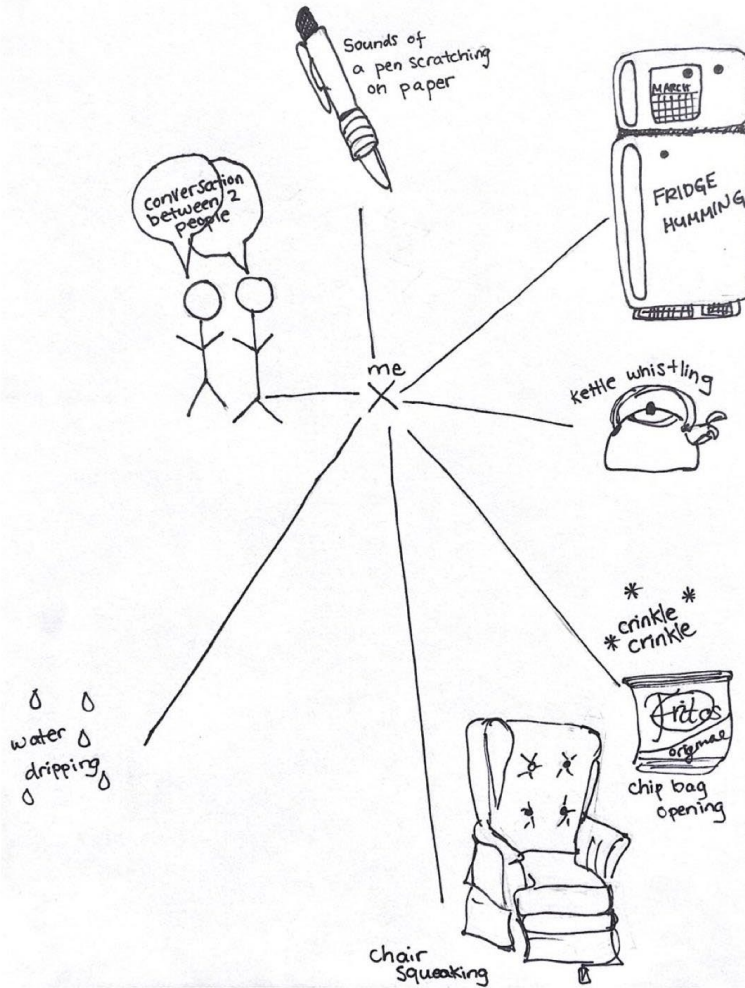 Sounds of
a pen scratching
on paper
MARCH
FRIDGE
HUMMING
conversation
between 2
people
me
kettle whistling
crinkle
crinkle
Fritos
original
chip bag
opening
water
dripping
chair
squeaking